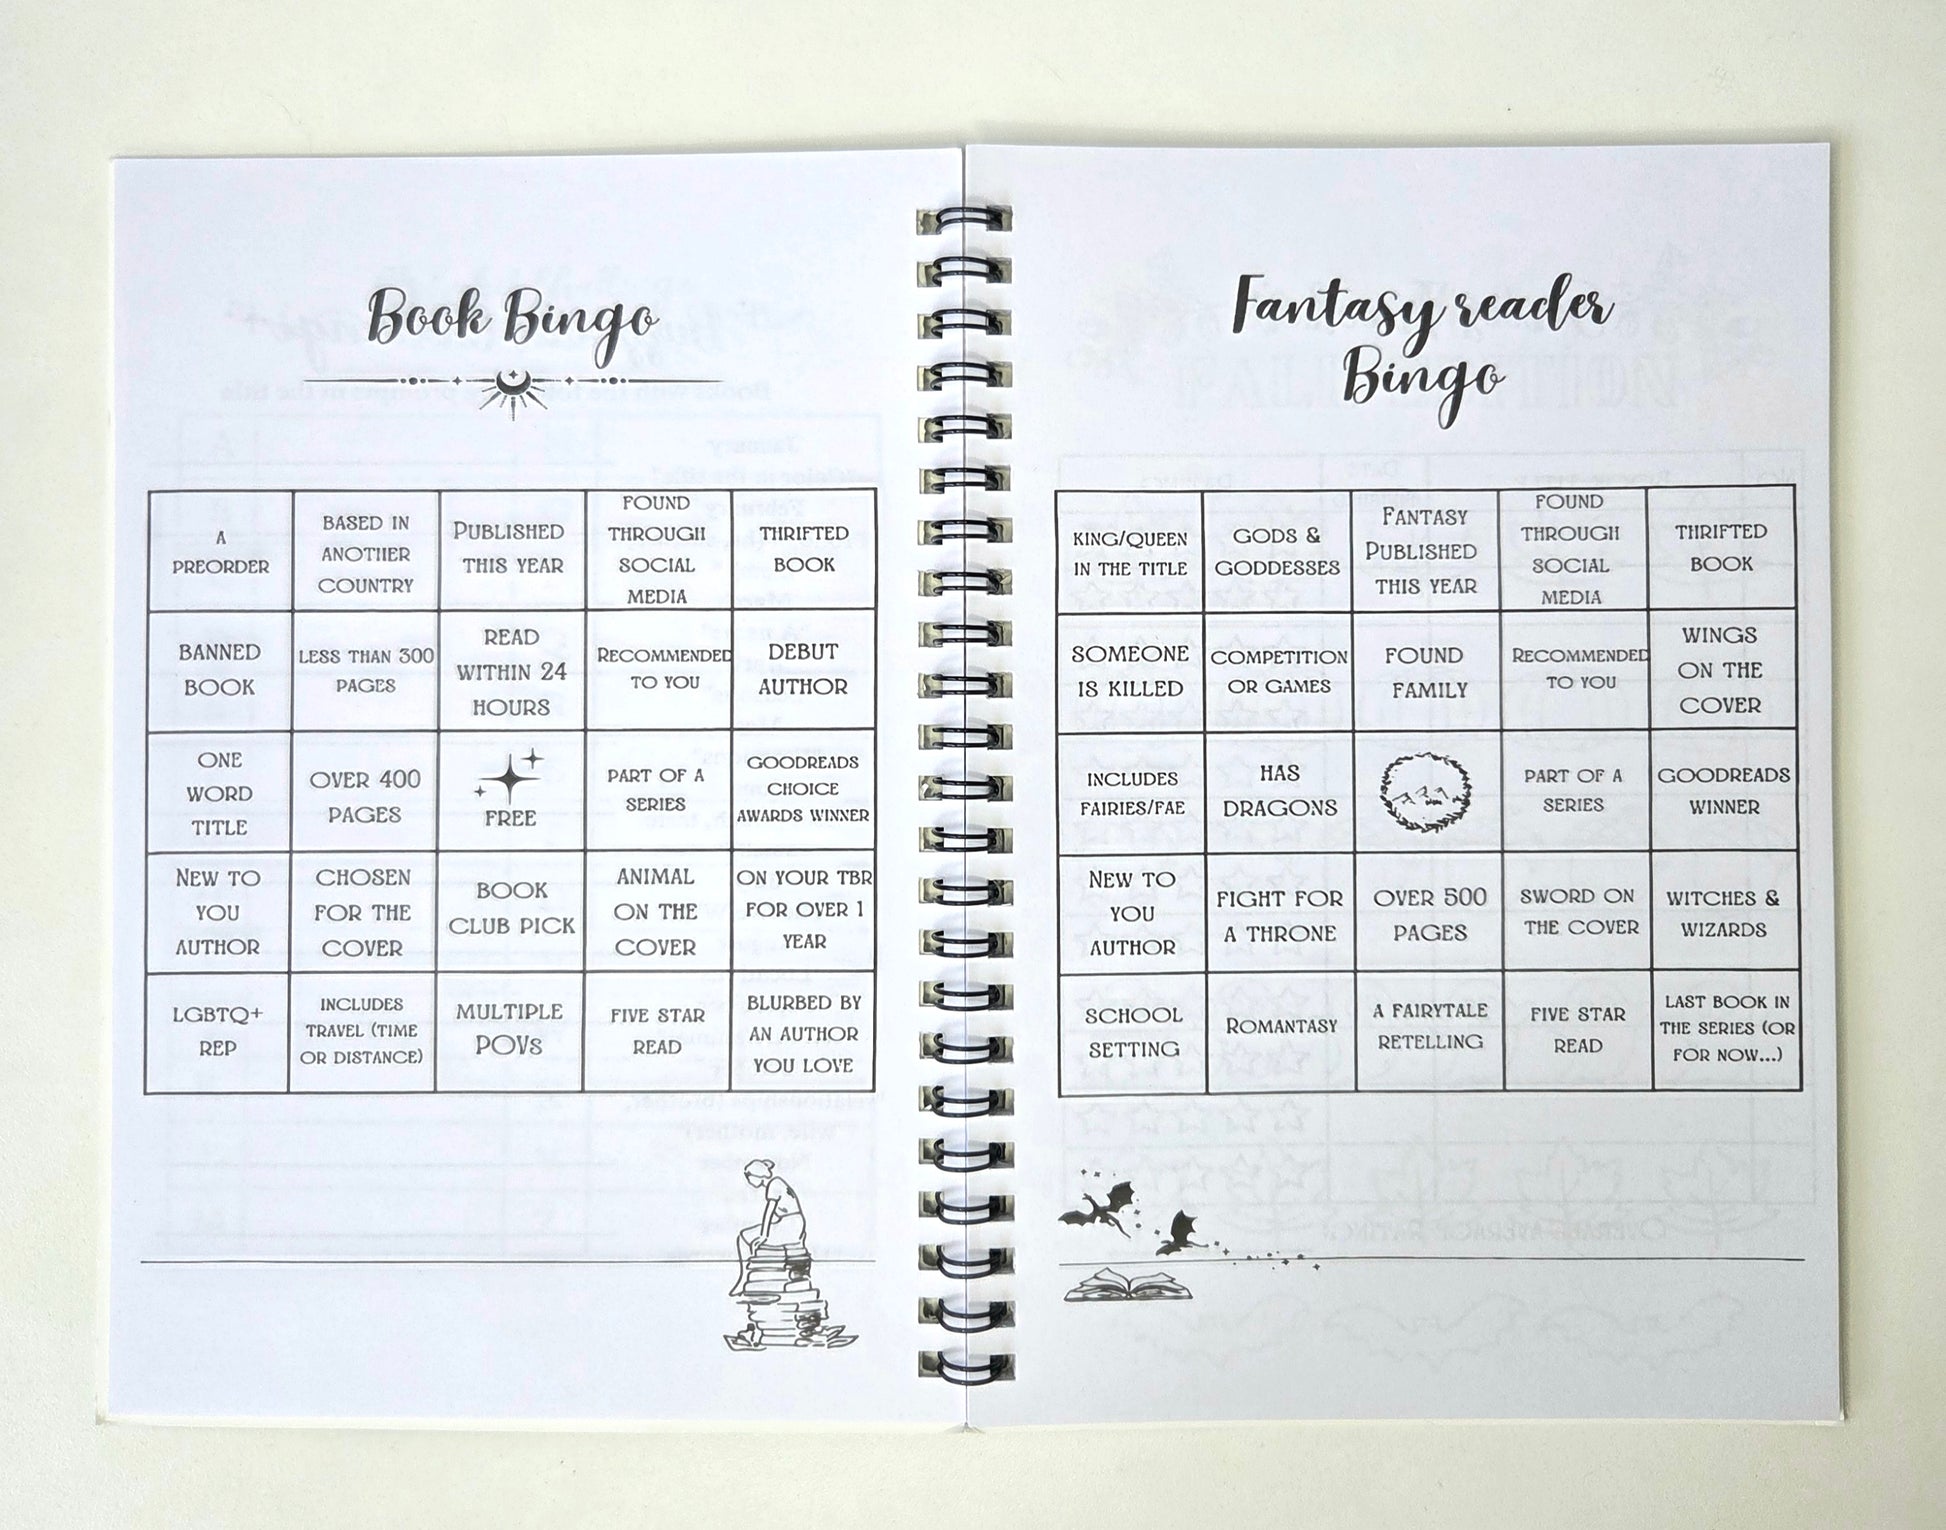 Book Bingo
A
PREORDER
BASED IN
ANOTHER
COUNTRY
PUBLISHED
THIS YEAR
FOUND
THROUGH
SOCIAL
MEDIA
THRIFTED
BOOK
BANNED
BOOK
LESS THAN 300
PAGES
READ
WITHIN 24
HOURS
RECOMMENDED
TO YOU
DEBUT
AUTHOR
ONE
WORD
TITLE
OVER 400
PAGES
FREE
PART OF A
SERIES
GOODREADS
CHOICE
AWARDS WINNER
NEW TO
YOU
AUTHOR
CHOSEN
FOR THE
COVER
BOOK
CLUB PICK
ANIMAL
ON THE
COVER
ON YOUR TBR
FOR OVER 1
YEAR
LGBTQ+
REP
INCLUDES
TRAVEL (TIME
OR DISTANCE)
MULTIPLE
POVs
FIVE STAR
READ
BLURBED BY
AN AUTHOR
YOU LOVE
Fantasy reader
Bingo
KING/QUEEN
IN THE TITLE
GODS &
GODDESSES
FANTASY
PUBLISHED
THIS YEAR
FOUND
THROUGH
SOCIAL
MEDIA
THRIFTED
BOOK
SOMEONE
IS KILLED
COMPETITION
OR GAMES
FOUND
FAMILY
RECOMMENDED
TO YOU
WINGS
ON THE
COVER
INCLUDES
FAIRIES/FAE
HAS
DRAGONS
PART OF A
SERIES
GOODREADS
WINNER
NEW TO
YOU
AUTHOR
FIGHT FOR
A THRONE
OVER 500
PAGES
SWORD ON
THE COVER
WITCHES &
WIZARDS
SCHOOL
SETTING
ROMANTASY
A FAIRYTALE
RETELLING
FIVE STAR
READ
LAST BOOK IN
THE SERIES (OR
FOR NOW...)